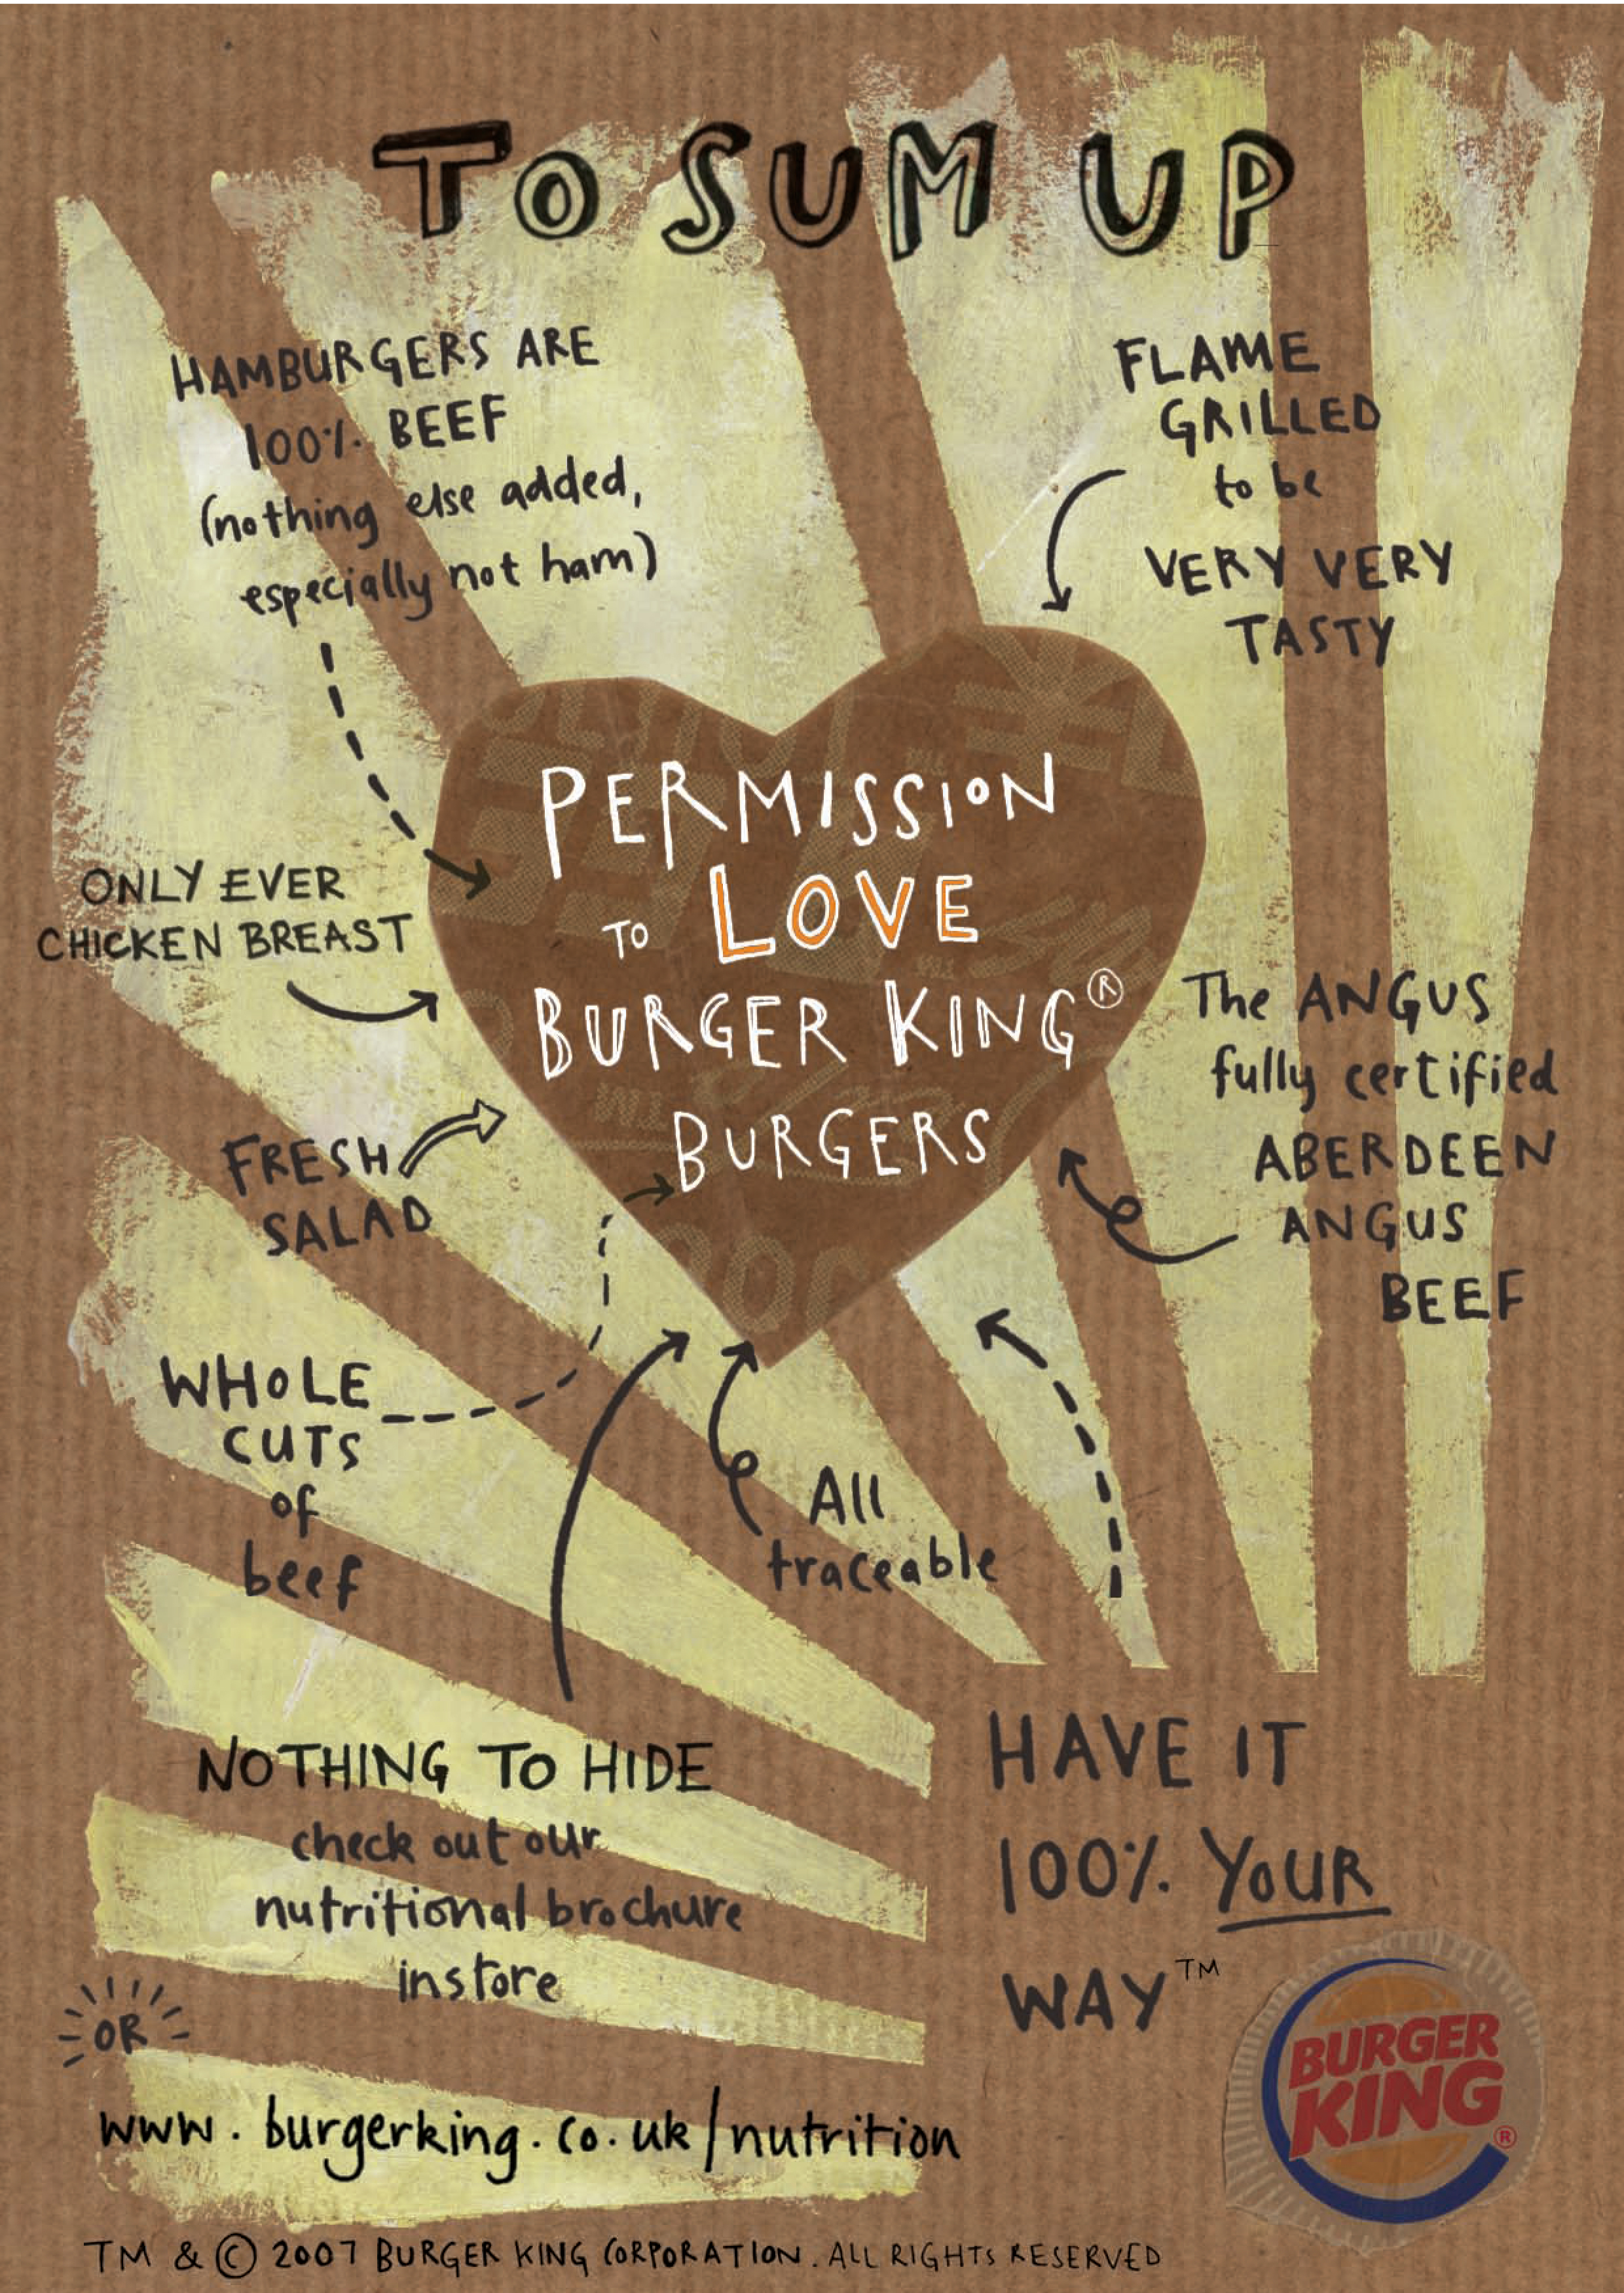 TO SUM UP
HAMBURGERS ARE
100% BEEF
(nothing else added,
especially not ham)
FLAME
GRILLED
to be
VERY VERY
TASTY
PERMISSION
TO LOVE
BURGER KING®
BURGERS
ONLY EVER
CHICKEN BREAST
The ANGUS
fully certified
ABERDEEN
ANGUS
BEEF
FRESH
SALAD
WHOLE
CUTS
of
beef
All
traceable
NOTHING TO HIDE
check out our
nutritional brochure
instore
OR
www.burgerking.co.uk/nutrition
HAVE IT
100% YOUR
WAY™
BURGER
KING®
TM & © 2007 BURGER KING CORPORATION. ALL RIGHTS RESERVED